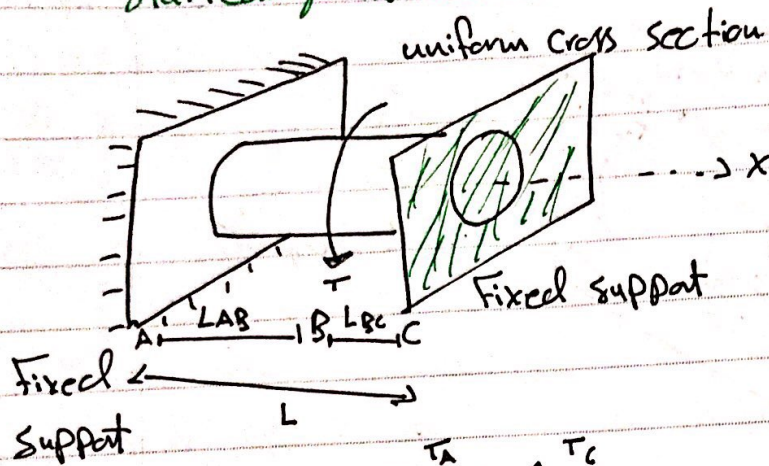 uniform cross section
x
T
Fixed support
A LAB B LBC C
Fixed
support
L
TA TC